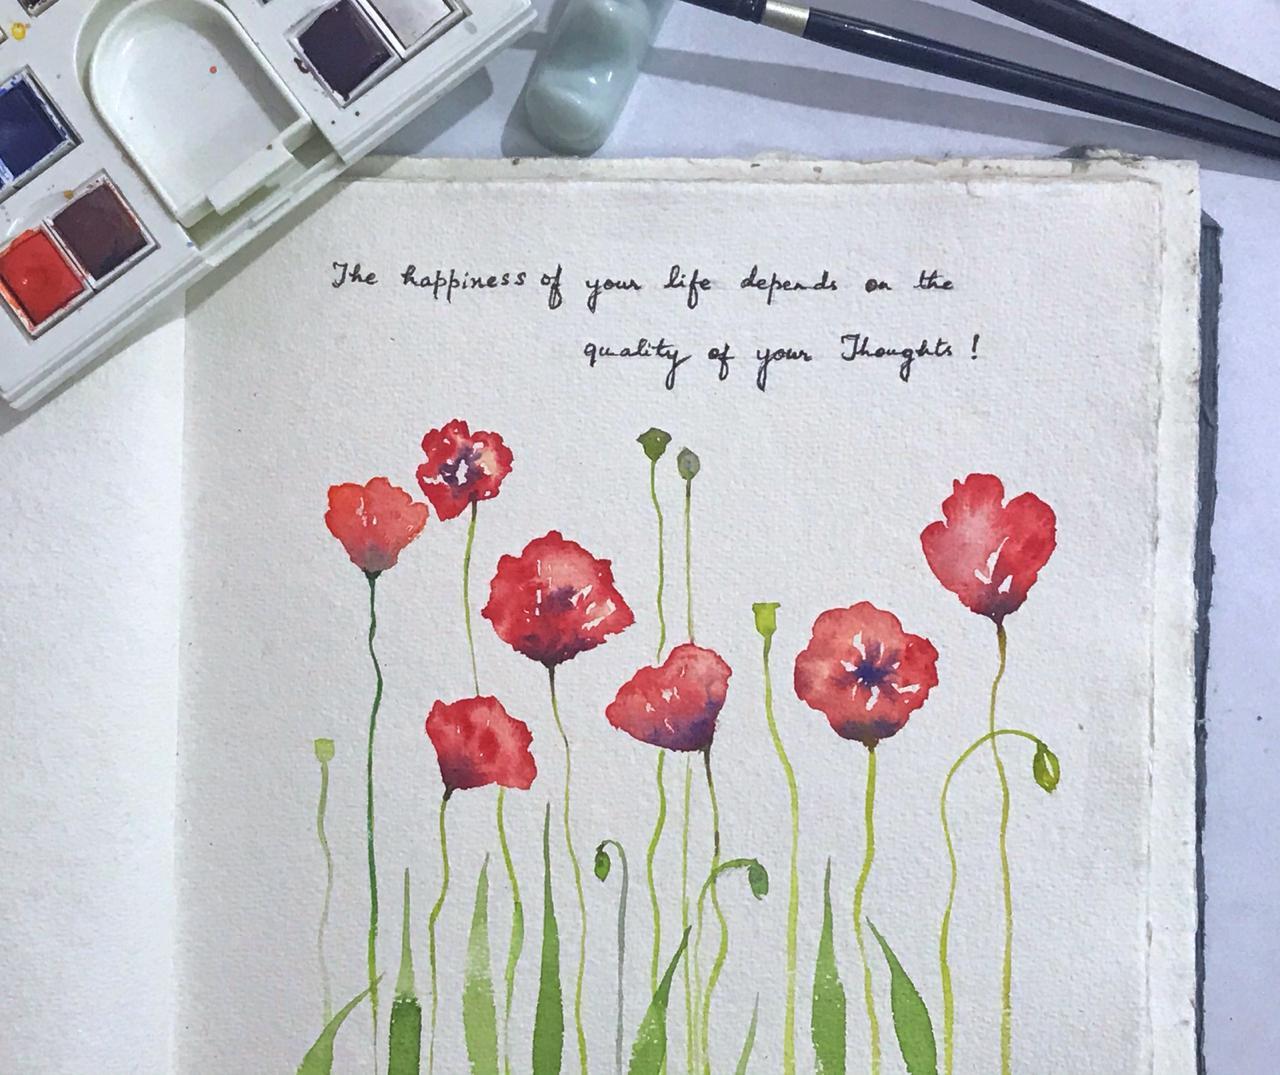 The happiness of your life depends on the
quality of your Thoughts !